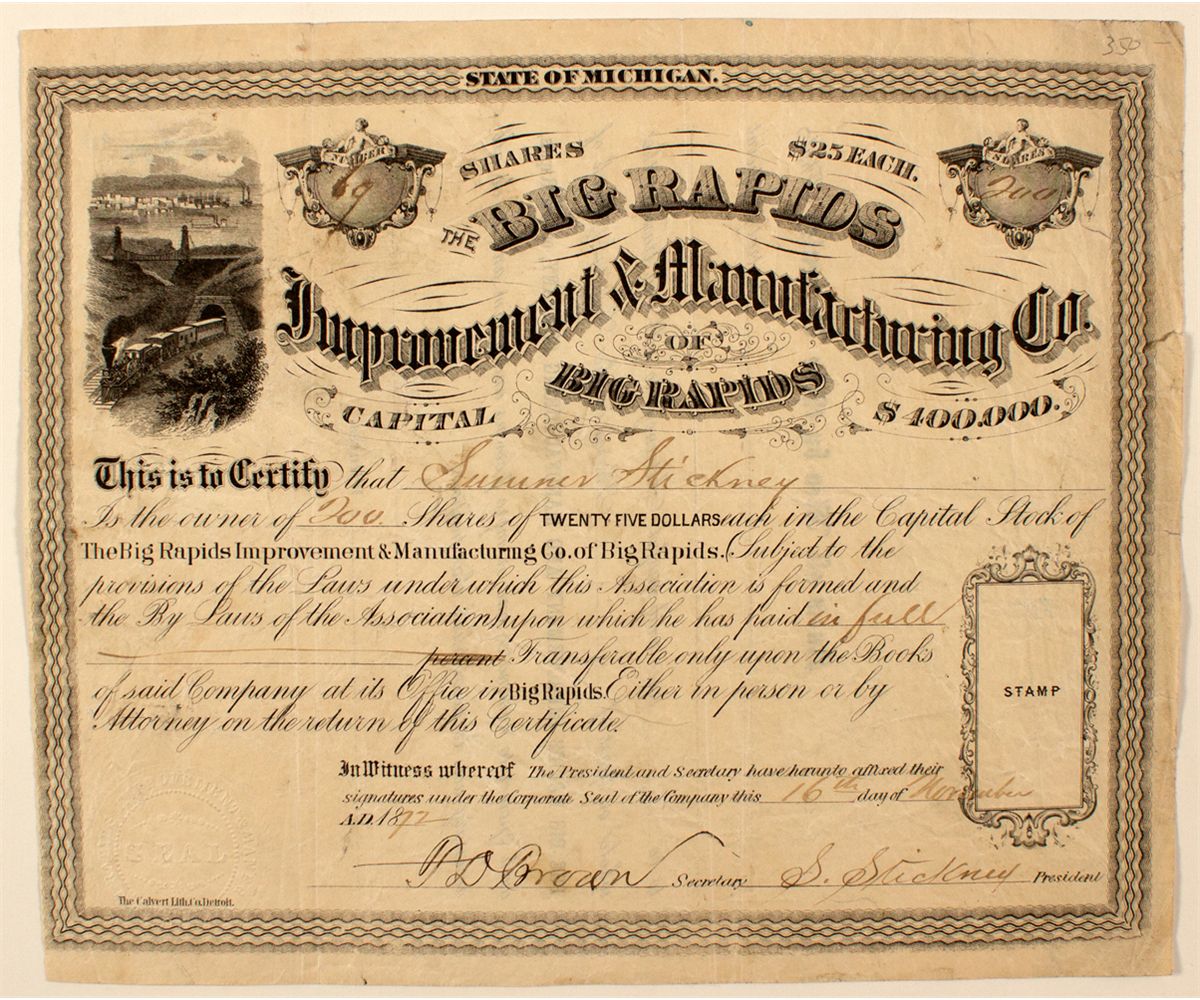 350 –
STATE OF MICHIGAN.
NUMBER
69
SHARES
$25 EACH.
SHARES
200
THE BIG RAPIDS
Improvement & Manufacturing Co.
OF
BIG RAPIDS
CAPITAL
$400.000.
This is to Certify that Sumner Stickney
Is the owner of 200 Shares of TWENTY FIVE DOLLARS each in the Capital Stock of
The Big Rapids Improvement & Manufacturing Co. of Big Rapids. (Subject to the
provisions of the Laws under which this Association is formed and
the By Laws of the Association) upon which he has paid in full
percent Transferable only upon the Books
of said Company at its Office in Big Rapids. Either in person or by
Attorney on the return of this Certificate.
STAMP
In Witness whereof The President and Secretary have herunto affixed their
signatures under the Corporate Seal of the Company this 16th day of November
A.D. 1872
SEAL
P D Brown Secretary S. Stickney President
The Calvert Lith. Co. Detroit.